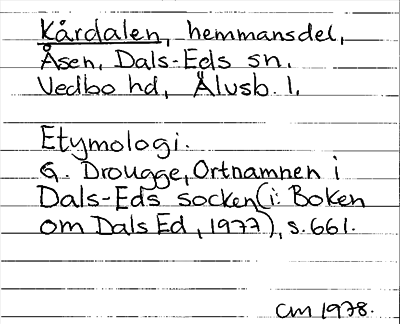 Kårdalen, hemmansdel,
Åsen, Dals-Eds sn.
Vedbo hd, Älvsb. l.
Etymologi.
G. Drougge, Ortnamnen i
Dals-Eds socken (i: Boken
om Dals Ed, 1977), s. 661.
CM 1978.